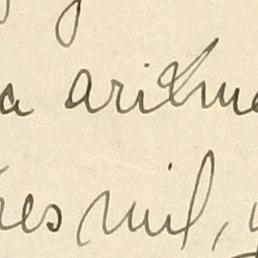 a aritme
res mil,